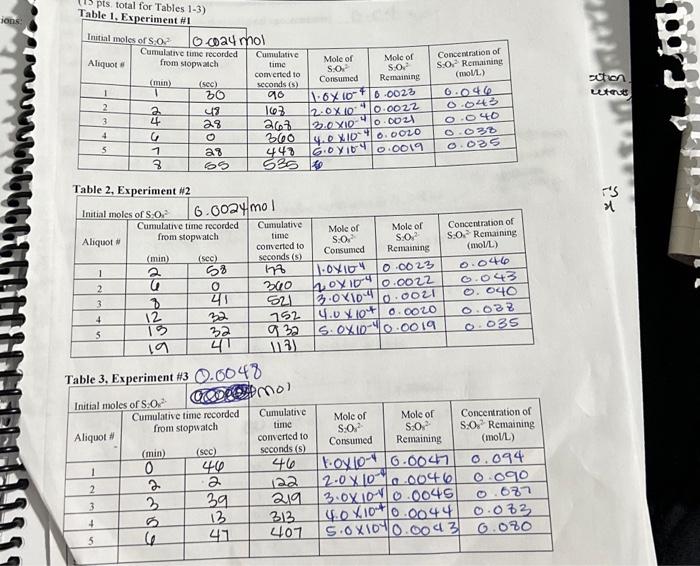 (15 pts. total for Tables 1-3)
Table 1, Experiment #1
Initial moles of S₂O₈²⁻ 0.0024 mol
Aliquot # Cumulative time recorded from stopwatch (min) (sec) Cumulative time converted to seconds (s) Mole of S₂O₈²⁻ Consumed Mole of S₂O₈²⁻ Remaining Concentration of S₂O₈²⁻ Remaining (mol/L)
1 1 30 90 1.0x10⁻⁴ 0.0023 0.046
2 2 48 168 2.0x10⁻⁴ 0.0022 0.043
3 4 28 268 3.0x10⁻⁴ 0.0021 0.040
4 6 0 360 4.0x10⁻⁴ 0.0020 0.038
5 7 28 448 5.0x10⁻⁴ 0.0019 0.035
8 55 535
Table 2, Experiment #2
Initial moles of S₂O₈²⁻ 0.0024 mol
Aliquot # Cumulative time recorded from stopwatch (min) (sec) Cumulative time converted to seconds (s) Mole of S₂O₈²⁻ Consumed Mole of S₂O₈²⁻ Remaining Concentration of S₂O₈²⁻ Remaining (mol/L)
1 2 58 178 1.0x10⁻⁴ 0.0023 0.046
2 6 0 360 2.0x10⁻⁴ 0.0022 0.043
3 8 41 521 3.0x10⁻⁴ 0.0021 0.040
4 12 32 752 4.0x10⁻⁴ 0.0020 0.038
5 15 32 932 5.0x10⁻⁴ 0.0019 0.035
19 41 1181
Table 3, Experiment #3 0.0048
Initial moles of S₂O₈²⁻ mol
Aliquot # Cumulative time recorded from stopwatch (min) (sec) Cumulative time converted to seconds (s) Mole of S₂O₈²⁻ Consumed Mole of S₂O₈²⁻ Remaining Concentration of S₂O₈²⁻ Remaining (mol/L)
1 0 46 46 1.0x10⁻⁴ 0.0047 0.094
2 2 2 122 2.0x10⁻⁴ 0.0046 0.090
3 3 39 219 3.0x10⁻⁴ 0.0045 0.087
4 5 13 313 4.0x10⁻⁴ 0.0044 0.083
5 6 47 407 5.0x10⁻⁴ 0.0043 0.080